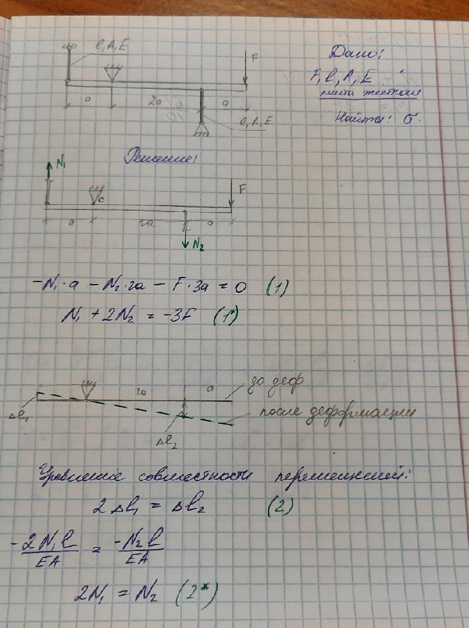 l, A, E
F
a
2a
a
l, A, E
Дано:
F, l, A, E
плита жесткая
Найти: σ
Решение:
N₁
F
c
a
2a
a
N₂
-N₁·a - N₂·2a - F·3a = 0 (1)
N₁ + 2N₂ = -3F (1*)
2a
a
до деф
Δl₁
после деформации
Δl₂
Уравнение совместности перемещений:
2Δl₁ = Δl₂ (2)
-2N₁l/EA = -N₂l/EA
2N₁ = N₂ (2*)